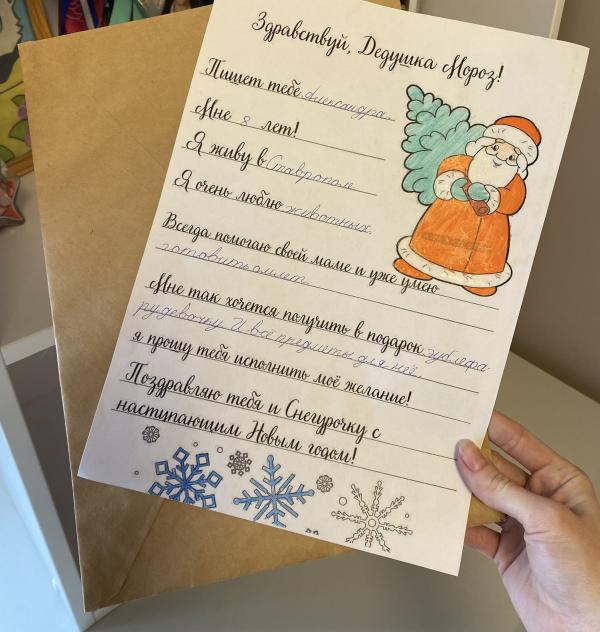 Здравствуй, Дедушка Мороз!
Пишет тебе Александра.
Мне 8 лет!
Я живу в Ставрополе
Я очень люблю животных.
Всегда помогаю своей маме и уже умею
готовить омлет.
Мне так хочется получить в подарок эублефа-
ру девочку. И всё предметы для неё.
я прошу тебя исполнить моё желание!
Поздравляю тебя и Снегурочку с
наступающим Новым годом!